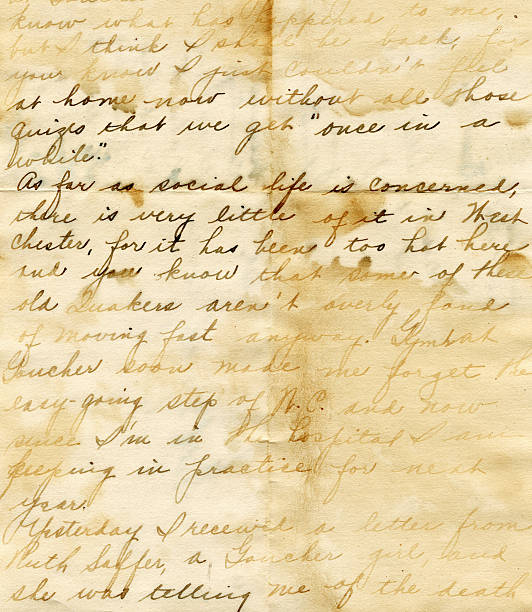 know what has happened to me,
but I think I shall be back, for
you know I just couldn't feel
at home now without all those
quizes that we get "once in a
while."
As far as social life is concerned,
there is very little of it in West
chester, for it has been too hot here
and you know that some of these
old Quakers aren't overly fond
of moving fast anyway. Gym at
Goucher soon made me forget the
easy-going step of N.C. and now
since I'm in the hospital I am
keeping in practice for next
year.
Yesterday I received a letter from
Ruth a Goucher girl, and
she was telling me of the death